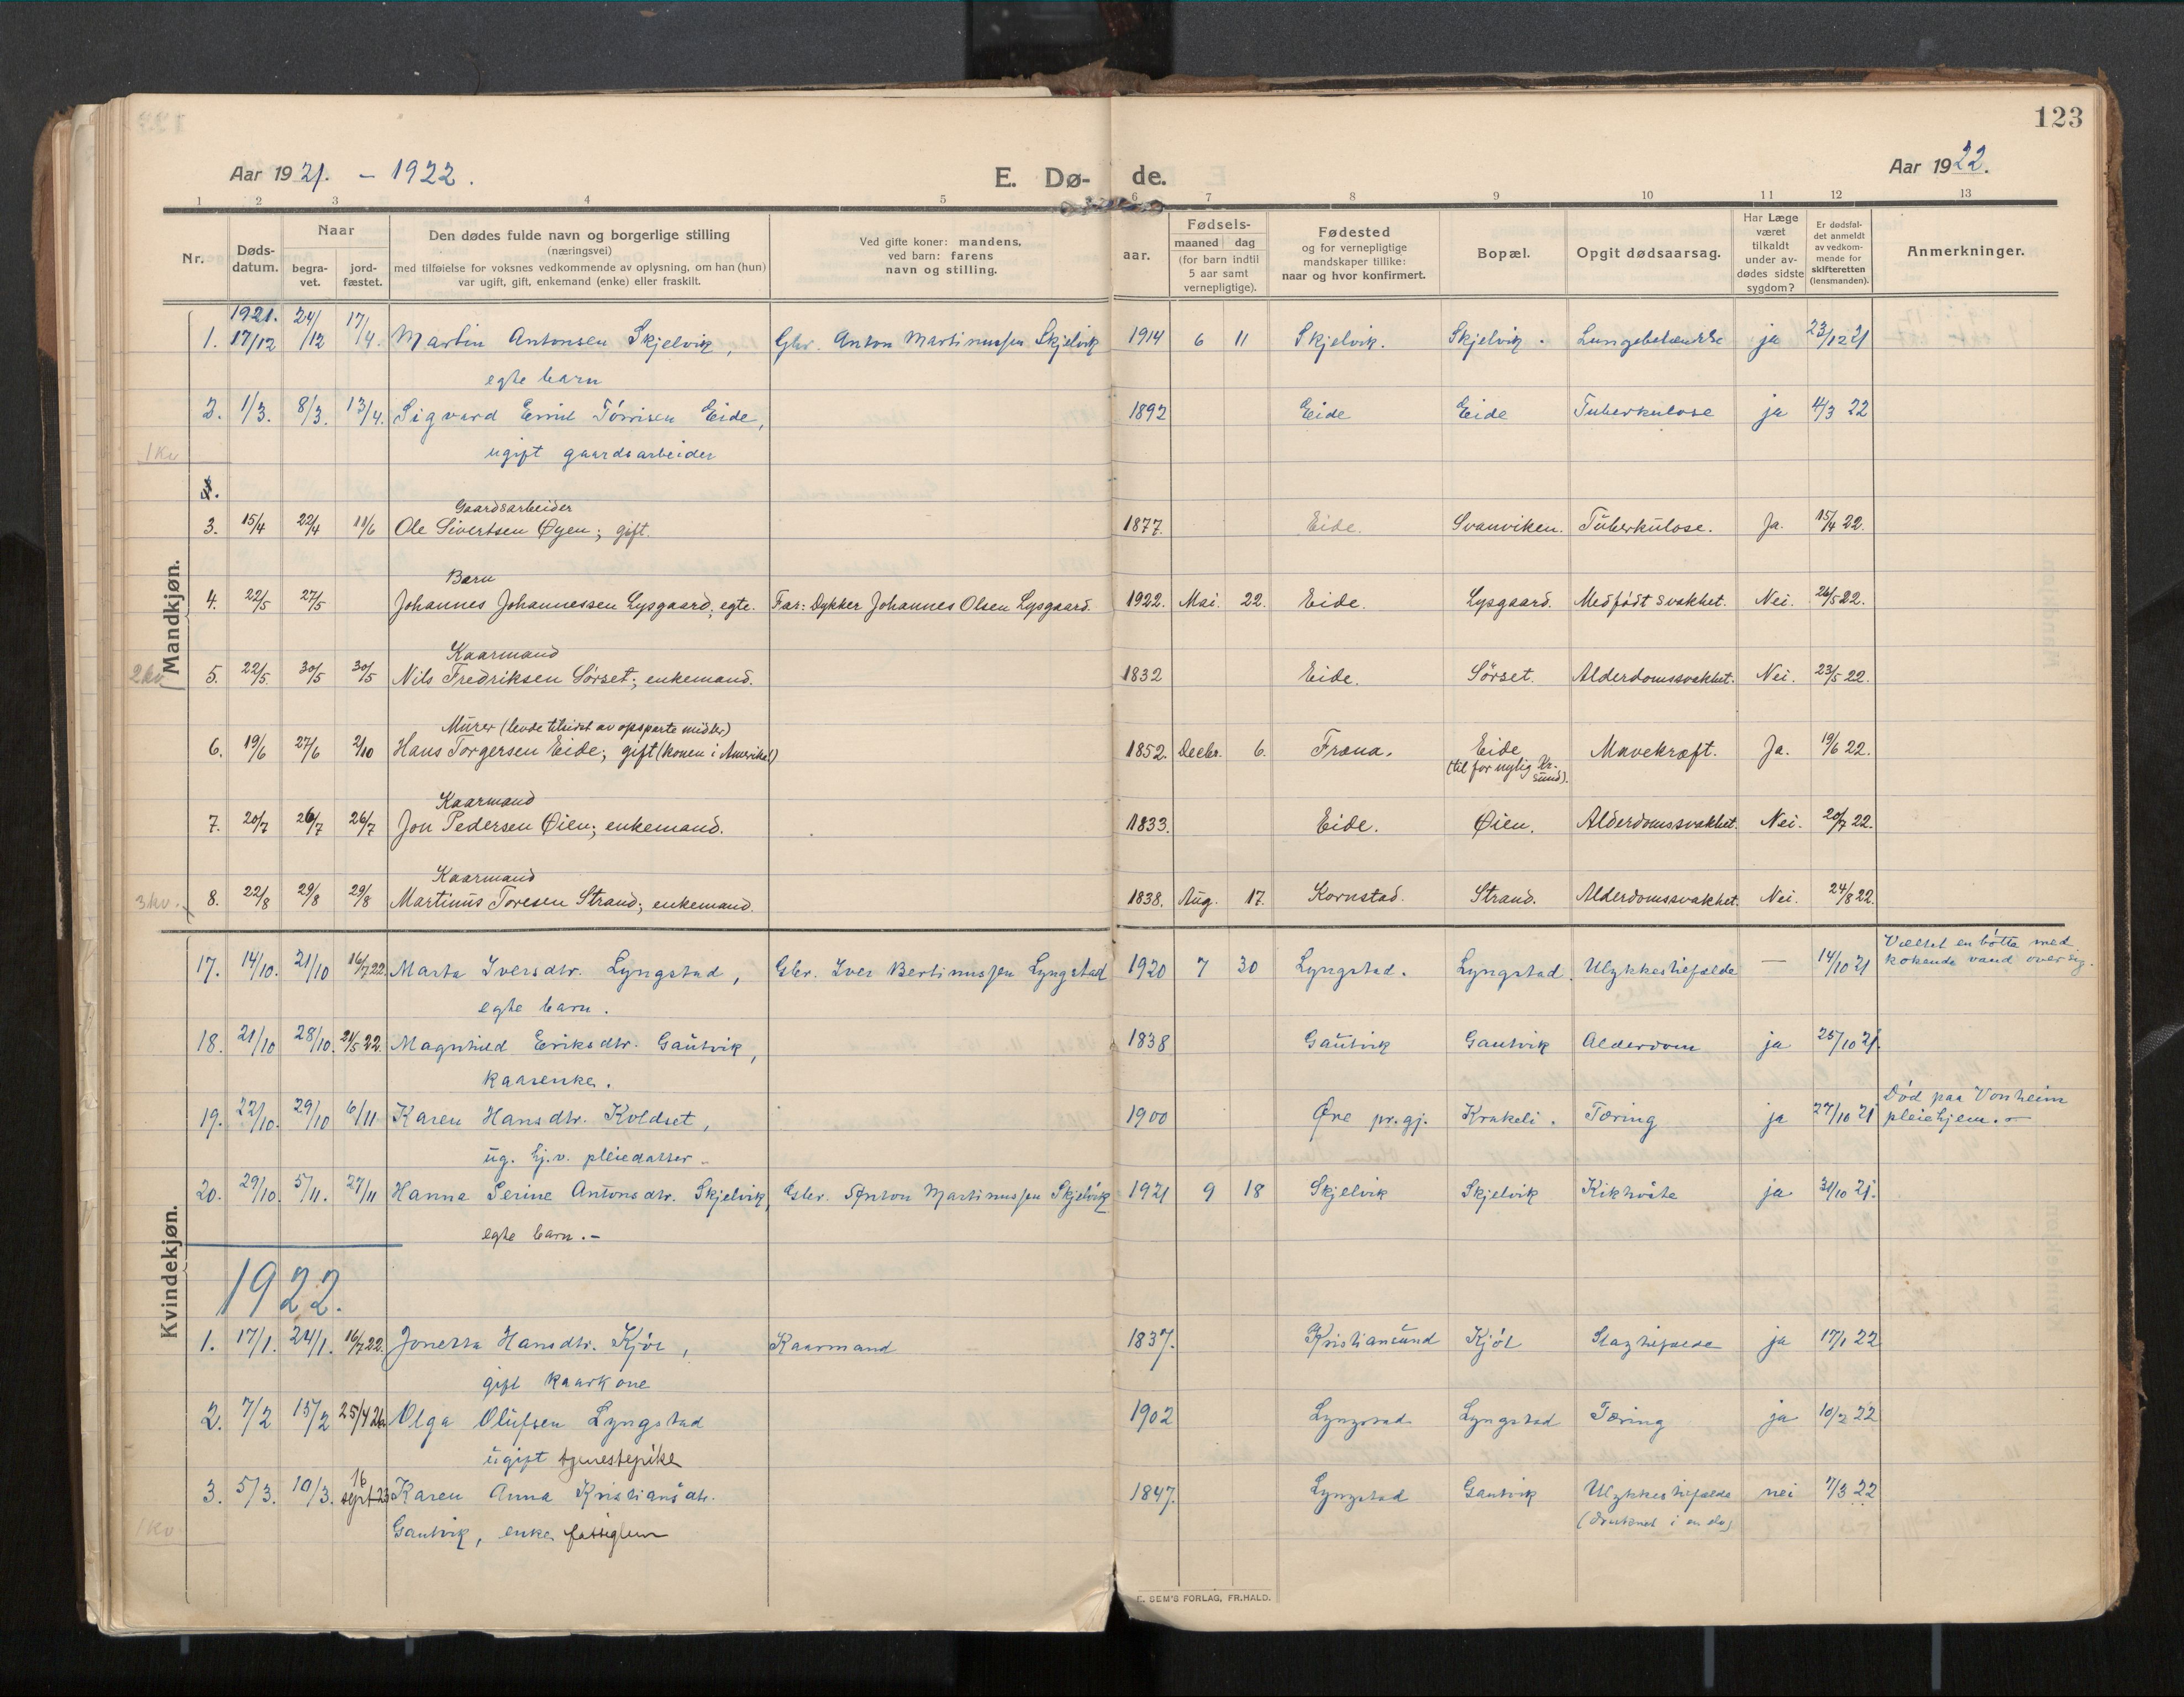 123
Aar 1921. – 1922.
E. Dø- de.
Aar 1922.
1 2 3 4 5 6 7 8 9 10 11 12 13
Nr.
Døds-
datum.
Naar
begra-
vet.
jord-
fæstet.
Den dødes fulde navn og borgerlige stilling
(næringsvei)
med tilføielse for voksnes vedkommende av oplysning, om han (hun)
var ugift, gift, enkemand (enke) eller fraskilt.
Ved gifte koner: mandens,
ved barn: farens
navn og stilling.
Fødsels-
aar.
maaned dag
(for barn indtil
5 aar samt
vernepligtige).
Fødested
og for vernepligtige
mandskaper tillike:
naar og hvor konfirmert.
Bopæl.
Opgit dødsaarsag.
Har Læge
været
tilkaldt
under av-
dødes sidste
sygdom?
Er dødsfal-
det anmeldt
av vedkom-
mende for
skifteretten
(lensmanden).
Anmerkninger.
Mandkjøn.
1921.
1. 17/12 24/12 17/4. Martin Antonsen Skjelvik, Gbr. Anton Martinussen Skjelvik 1914 6 11 Skjelvik. Skjelvik. Lungebetændelse ja 23/12 21
egte barn
2. 1/3. 8/3. 13/4. Sigvard Emil Tørrisen Eide, 1892 Eide Eide Tuberkulose ja 4/3 22
1 kv
ugift gaardsarbeider
Gaardsarbeider
3. 15/4 22/4 11/6 Ole Sivertsen Øyen; gift. 1877. Eide. Svanviken. Tuberkulose. Ja. 15/4 22.
Barn
4. 22/5 27/5 Johannes Johannessen Lysgaard; egte. Far: Dykker Johannes Olsen Lysgaard. 1922. Mai. 22. Eide. Lysgaard. Medfødt svakhet. Nei. 26/5 22.
Kaarmand
2 kv. 5. 22/5. 30/5 30/5 Nils Fredriksen Sørset; enkemand. 1832 Eide. Sørset. Alderdomssvakhet. Nei. 23/5 22.
Murer (levde tilsidst av opsparte midler)
6. 19/6 27/6 2/10 Hans Torgersen Eide; gift (konen i Amerika!) 1852. Decbr. 6. Fræna. Eide Mavekræft. Ja. 19/6 22.
(til for nylig Kr-
sund).
Kaarmand
7. 20/7 26/7 26/7 Jon Pedersen Øien; enkemand. 1833. Eide. Øien. Alderdomssvakhet. Nei. 20/7 22.
Kaarmand
3 kv. 8. 22/8 29/8 29/8 Martinus Toresen Strand; enkemand. 1838. Aug. 17. Kornstad. Strand. Alderdomssvakhet. Nei. 24/8 22.
Kvindekjøn.
17. 14/10. 21/10 16/7 22. Marta Iversdtr. Lyngstad, Gbr. Iver Bertinussen Lyngstad 1920 7 30 Lyngstad. Lyngstad. Ulykkestilfælde — 14/10 21 Væltet en bøtta med
kokende vand over sig.
egte barn.
18. 21/10 28/10. 21/5 22. Magnhild Eriksdtr. Gautvik, 1838 Gautvik Gautvik Alderdom ja 25/10 21.
kaarenke.
19. 22/10. 29/10 6/11 Karen Hansdtr. Koldset, 1900 Øre pr.gj. Krakeli. Tæring ja 27/10 21 Død paa Vonheim
pleiehjem.
ug. hj.v. pleiedatter
20. 29/10. 5/11. 27/11 Hanna Serine Antonsdtr. Skjelvik, Gbr. Anton Martinussen Skjelvik 1921 9 18 Skjelvik Skjelvik Kikhoste ja 31/10 21.
egte barn.–
1922.
1. 17/1. 24/1. 16/7 22. Jonetta Hansdtr. Kjøl, Kaarmand 1837. Kristiansund Kjøl Slagtilfælde ja 17/1 22
gift kaarkone
2. 7/2 15/2 25/4 26 Olga Olufsen Lyngstad 1902 Lyngstad Lyngstad Tæring ja 10/2 22
ugift tjenestepike
3. 5/3. 10/3. 16 sept 23 Karen Anna Kristiansdtr. 1847. Lyngstad Gautvik Ulykkestilfælde nei 7/3 22
1 kv. Gautvik, enke fattiglem (druknet i en elv)
E. SEM'S FORLAG, FR.HALD.